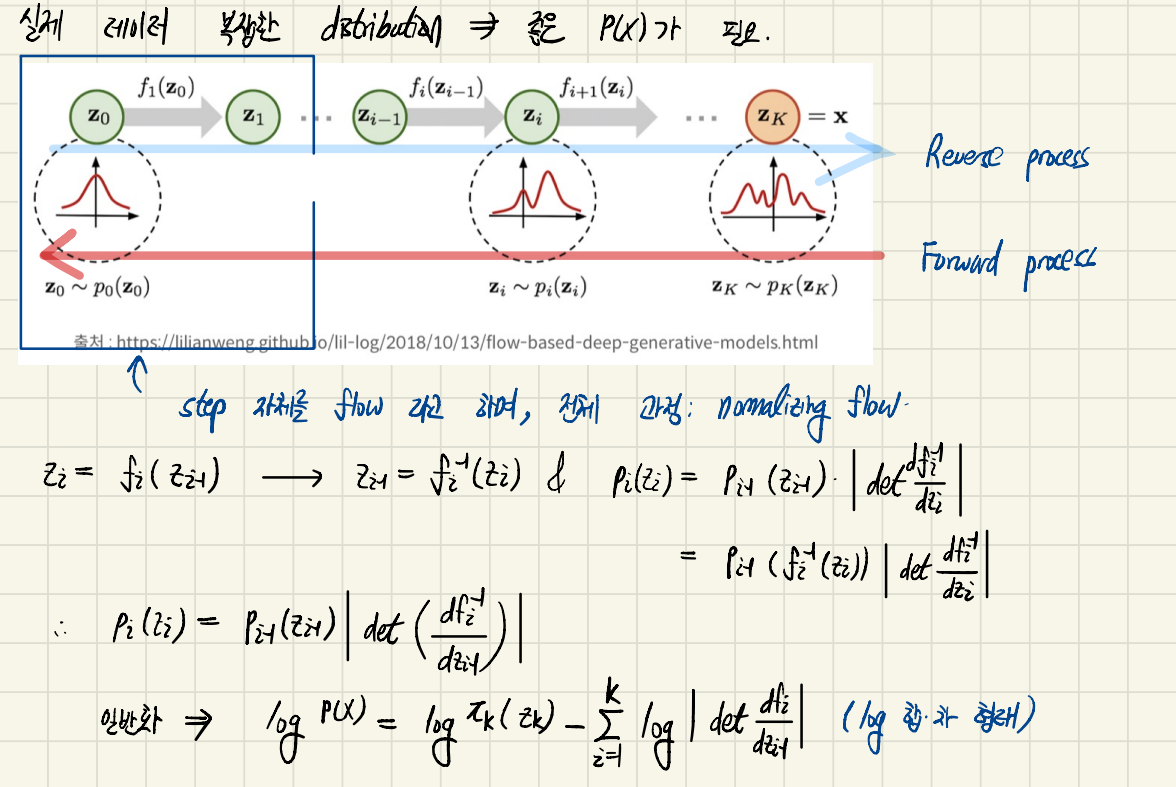 실제 데이터 복잡한 distribution ⇒ 좋은 P(X)가 필요.
f₁(z₀) fᵢ(zᵢ₋₁) fᵢ₊₁(zᵢ)
z₀ z₁ ··· zᵢ₋₁ zᵢ ··· z_K = x
Reverse process
Forward process
z₀ ~ p₀(z₀) zᵢ ~ pᵢ(zᵢ) z_K ~ p_K(z_K)
출처 : https://lilianweng.github.io/lil-log/2018/10/13/flow-based-deep-generative-models.html
step 자체를 flow 라고 하며, 전체 과정: normalizing flow.
zᵢ = fᵢ(zᵢ₋₁) → zᵢ₋₁ = fᵢ⁻¹(zᵢ) & pᵢ(zᵢ) = pᵢ₋₁(zᵢ₋₁)·|det dfᵢ⁻¹/dzᵢ|
= pᵢ₋₁(fᵢ⁻¹(zᵢ))|det dfᵢ⁻¹/dzᵢ|
∴ pᵢ(zᵢ) = pᵢ₋₁(zᵢ₋₁)|det(dfᵢ⁻¹/dzᵢ₋₁)|
일반화 ⇒ log P(X) = log π_k(z_k) - Σᵢ₌₁ᴷ log|det dfᵢ/dzᵢ₋₁| (log 합·차 형태)